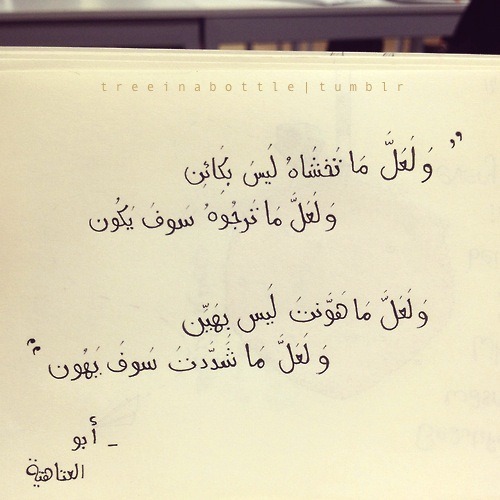 treeinabottle|tumblr
" وَ لَعَلَّ مَا تَخشَاهُ لَيسَ بِكَائِنِ
وَ لَعَلَّ مَا تَرجُوهُ سَوفَ يَكُون
وَ لَعَلَّ مَا هَوَّنتَ لَيس بِهَيِّن
وَ لَعَلَّ مَا شَدَّدتَ سَوفَ يَهُون "
ـ أبو
العتاهية